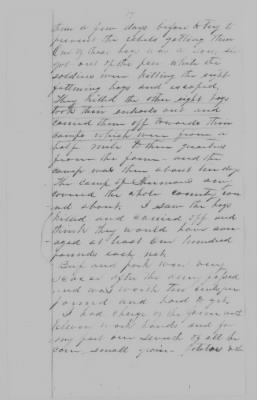 them a few days before to try to
prevent the rebels getting them
One of these hogs was a sow, she
got out of the pen while the
soldiers were killing the eight
fattening hogs and escaped,
They killed the other eight hogs
took their entrails out and
carried them off towards their
camps which were from a
half mile to three quarters
from the farm - and the
camp was there about ten days
The camp of Armies
around the whole country
round about. I saw the hogs
killed and carried off and
think they would have aver
aged at least one hundred
pounds each net.
Beef and pork was very
scarce after the army passed
and was worth ten cents per
pound and hard to get.
I had charge of the farm and
eleven work hands and for
my part one seventh of all the
corn, small grain, Potatoes &c